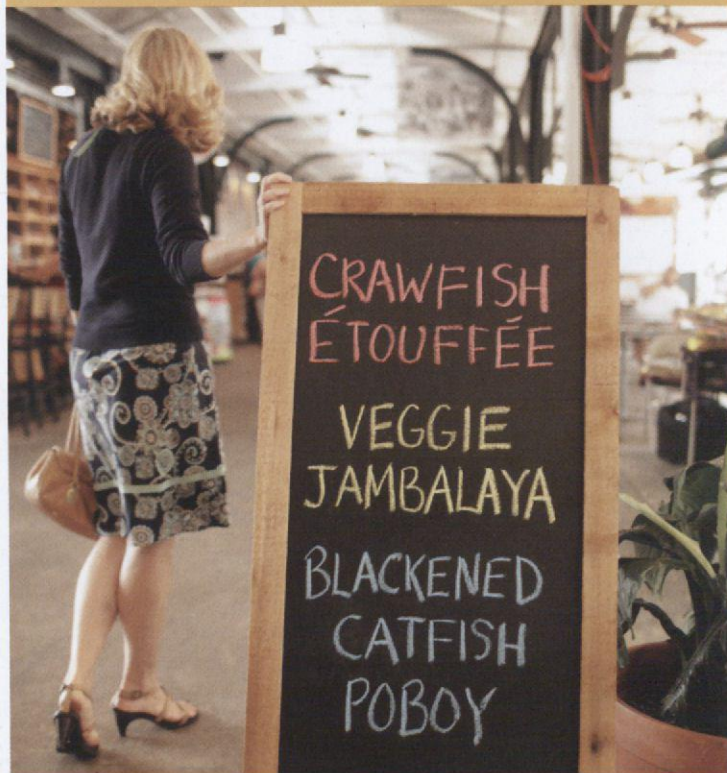 CRAWFISH
ÉTOUFFÉE
VEGGIE
JAMBALAYA
BLACKENED
CATFISH
POBOY